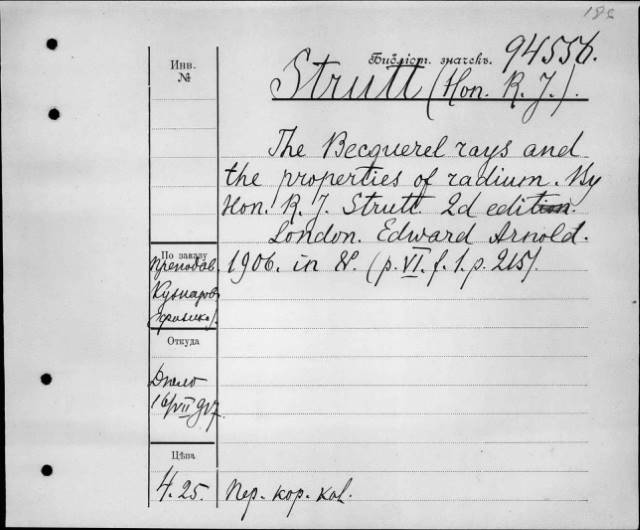 186
Инв.
№
Библіот. значекъ. 94556.
Strutt (Hon. R. J.).
The Becquerel rays and
the properties of radium. By
Hon. R. J. Strutt. 2d edition.
London. Edward Arnold.
1906. in 8°. (p. VI. f. 1. p. 215).
По заказу
преподав.
Откуда
16/VII 917.
Цѣна
4.25. Пер. кор. кол.